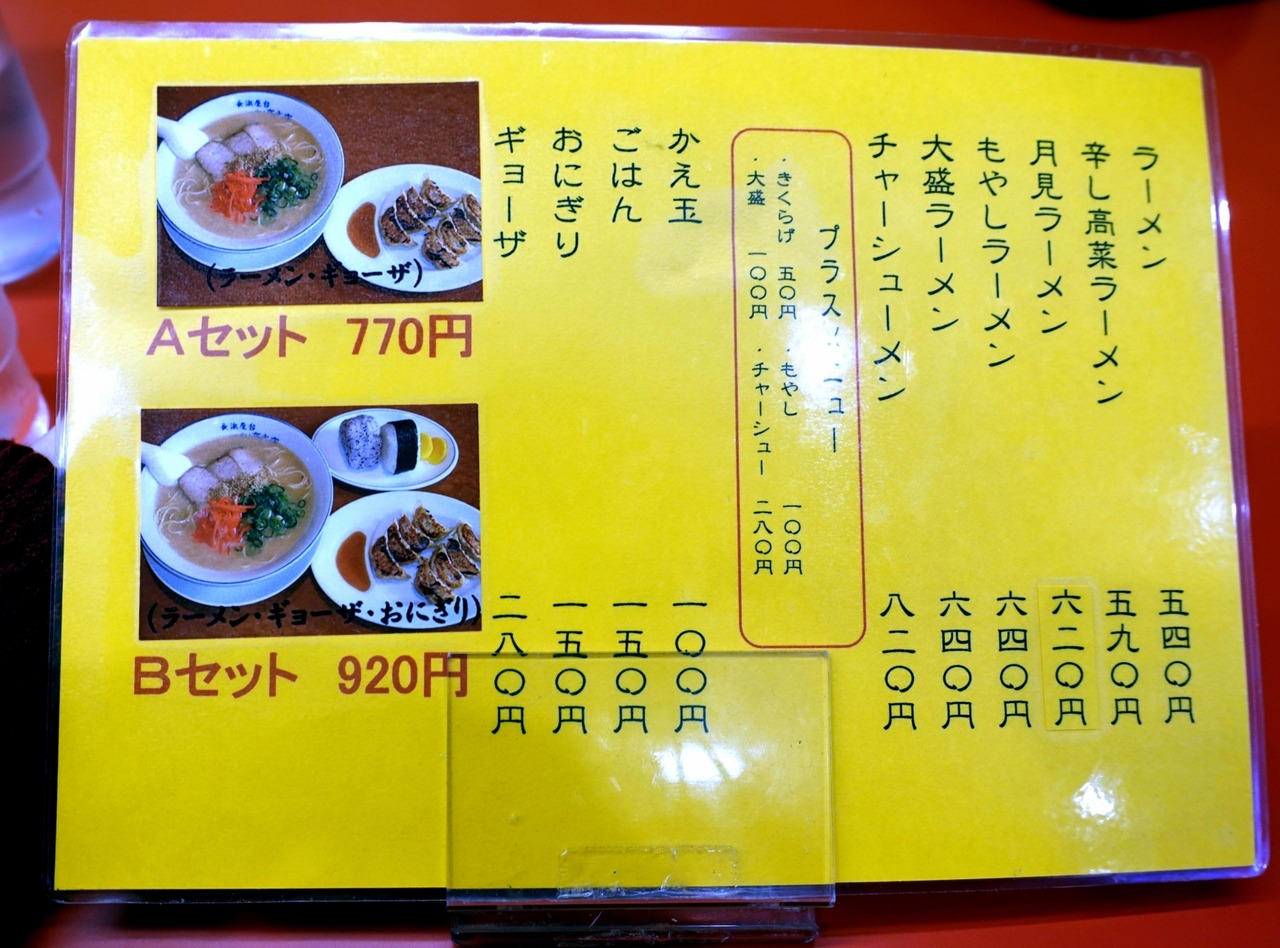 ラーメン 五四〇円
辛し高菜ラーメン 五九〇円
月見ラーメン 六二〇円
もやしラーメン 六四〇円
大盛ラーメン 六四〇円
チャーシューメン 八二〇円
プラスメニュー
・きくらげ 五〇円 ・もやし 一〇〇円
・大盛 一〇〇円 ・チャーシュー 二八〇円
かえ玉 一〇〇円
ごはん 一五〇円
おにぎり 一五〇円
ギョーザ 二八〇円
長浜屋台
(ラーメン・ギョーザ)
Aセット 770円
長浜屋台
(ラーメン・ギョーザ・おにぎり)
Bセット 920円